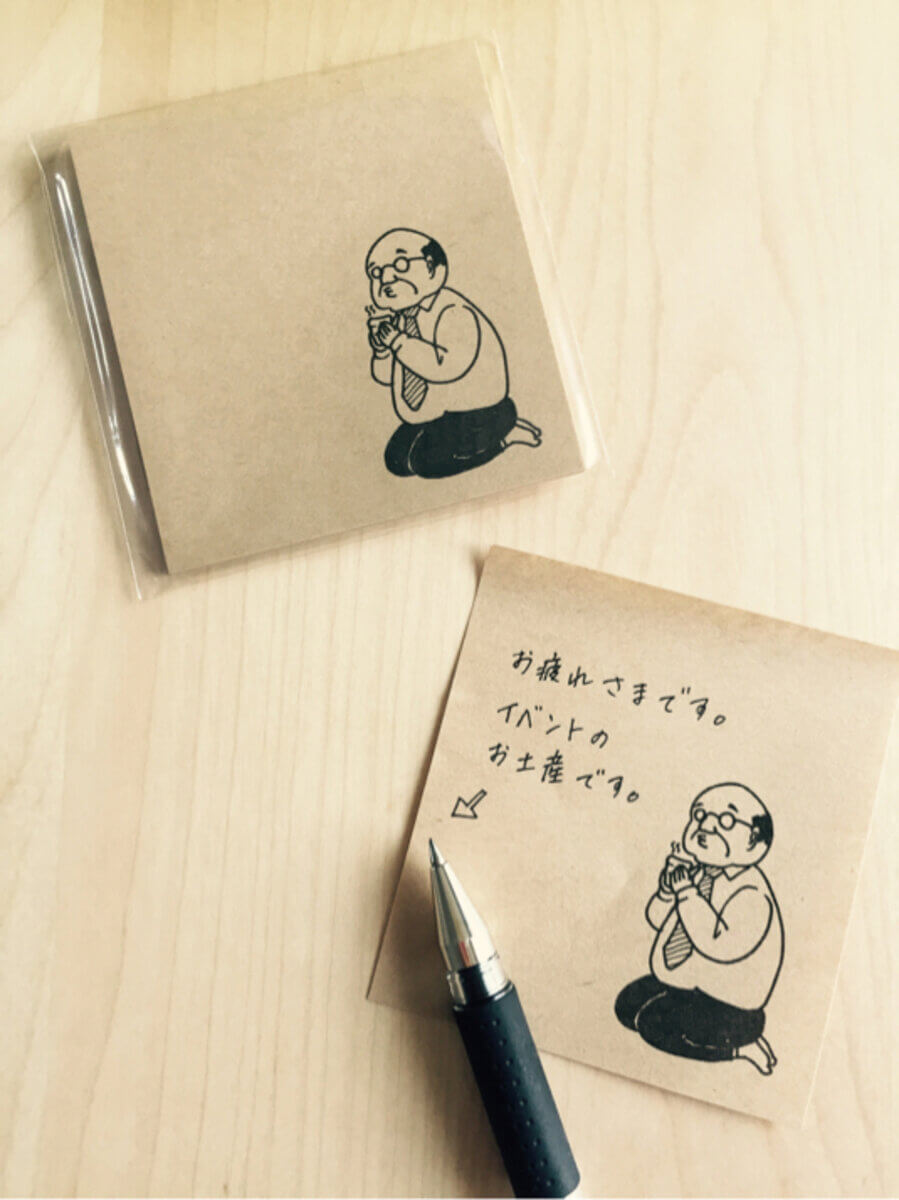 お疲れさまです。
イベントの
お土産です。